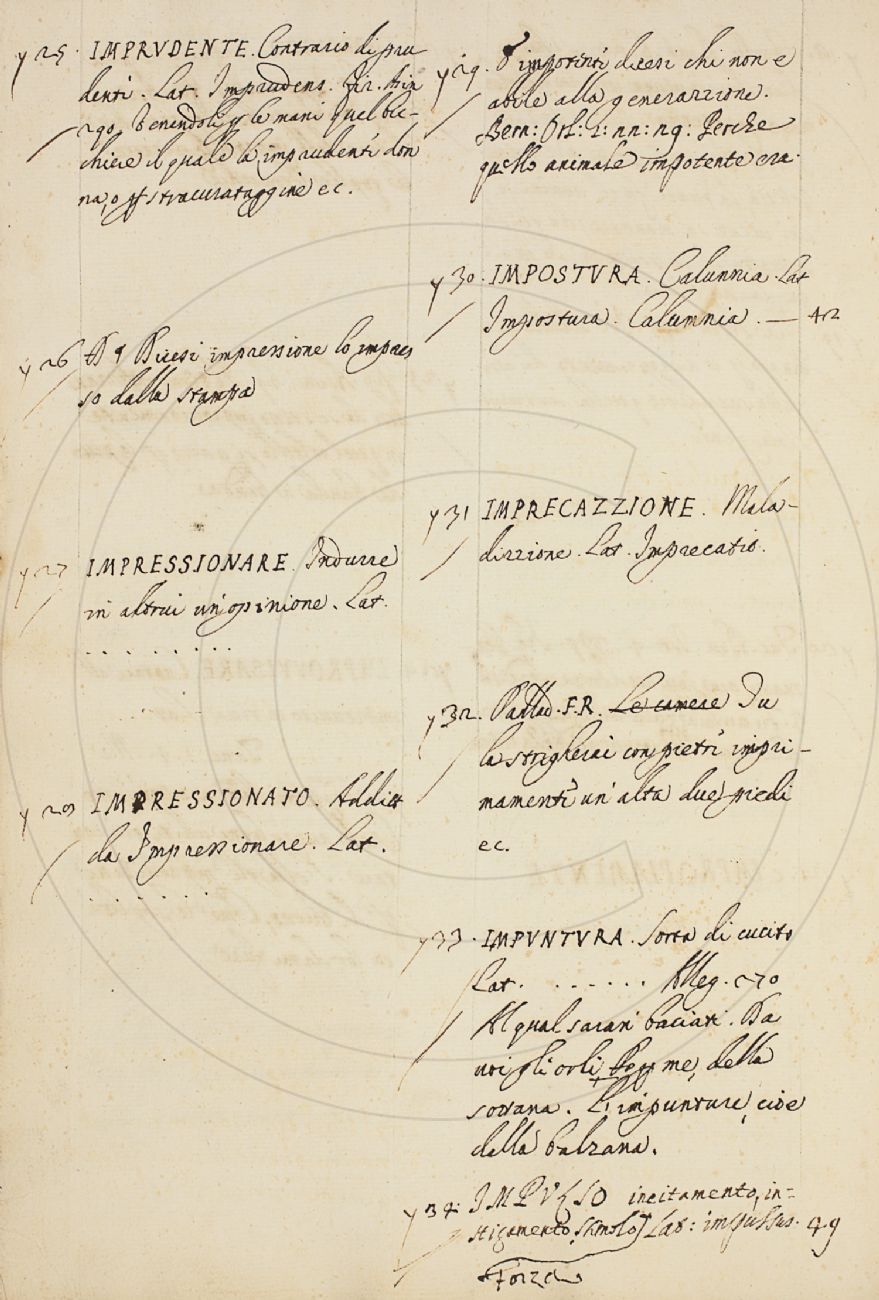 y 25. IMPRVDENTE. Contrario di pru
denti. Lat. Imprudens. Fir. Asin
290. Tenendoli p le mani quel bic-
chiere il quale le imprudenti don
na, o p stracurataggine ec.
y 26 Dicesi impressione lo impres
so dalla stampa
y 27 IMPRESSIONARE. Indurre
in altrui un'opinione. Lat.
. . . . . . . .
y 28 IMPRESSIONATO. Addiet
da Impressionare. Lat.
. . . . . . .
y 29. impotenti dicesi chi non e
abile alla generazzione.
Bern: Orl: 1: Perche
quello animale impotente era.
y 30. IMPOSTVRA. Calunnia. Lat
Impostura. Calumnia. — 42
y 31 IMPRECAZZIONE. Mala-
dizzione. Lat. Imprecatio.
y 32. Pallad. F.R. Le camere Tu
la striglierai con pietri impri-
mamenti un'alta due piedi
ec.
y 33. IMPVNTVRA. Sorta di cucito
Lat. . . . . . . Alleg. 270
Al qual sarari baciati. Da
voi gli orli, me, della
sottana. L'impunture, cioe
della balzana.
y 34: IMPVLSO incitamento, in-
stigamento, stimolo, Lat: impulsus. 49
Forza